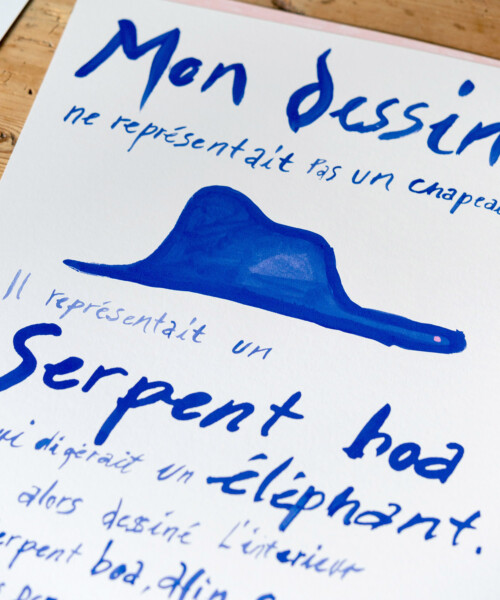 Mon dessin
ne représentait pas un chapeau
Il représentait un
Serpent boa
qui digérait un éléphant.
alors dessiné l'intérieur
serpent boa, afin